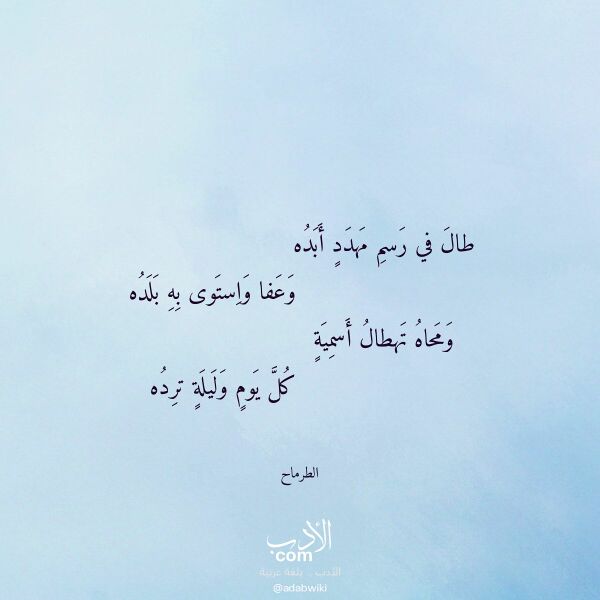 طالَ في رَسمِ مَهدَدٍ أَبَدُه
وَعَفا وَاِستَوى بِهِ بَلَدُه
وَمَحاهُ تَهطالُ أَسمِيَةٍ
كُلَّ يَومٍ وَلَيلَةٍ تَرِدُه
الطرماح
الأدب
com
الأدب .. بلغة عربية
@adabwiki